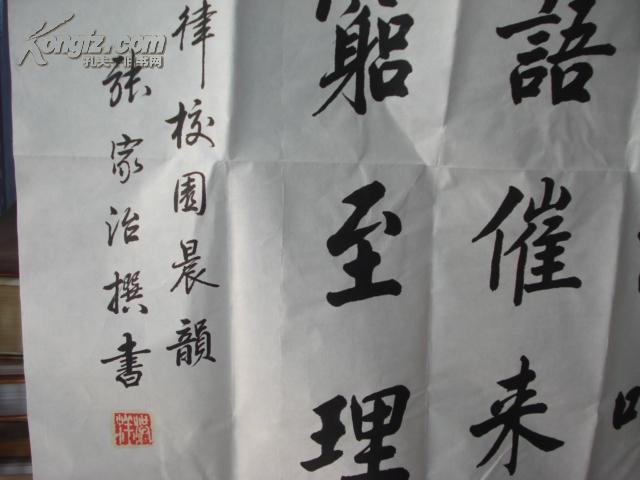 語催来
窮至理
律校園晨韻
張家治撰書
Kongfz.com
孔夫子旧书网